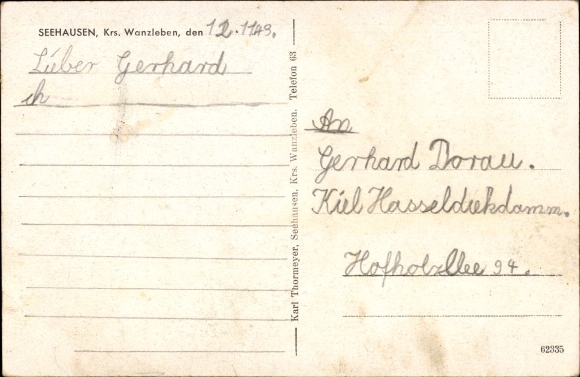 SEEHAUSEN, Krs. Wanzleben, den 12.1143.
Lieber Gerhard
ich
Karl Thormeyer, Seehausen, Krs. Wanzleben. Telefon 63
An
Gerhard Dorau.
Kiel Hasseldiekdamm.
Hofholzllee 94.
62335